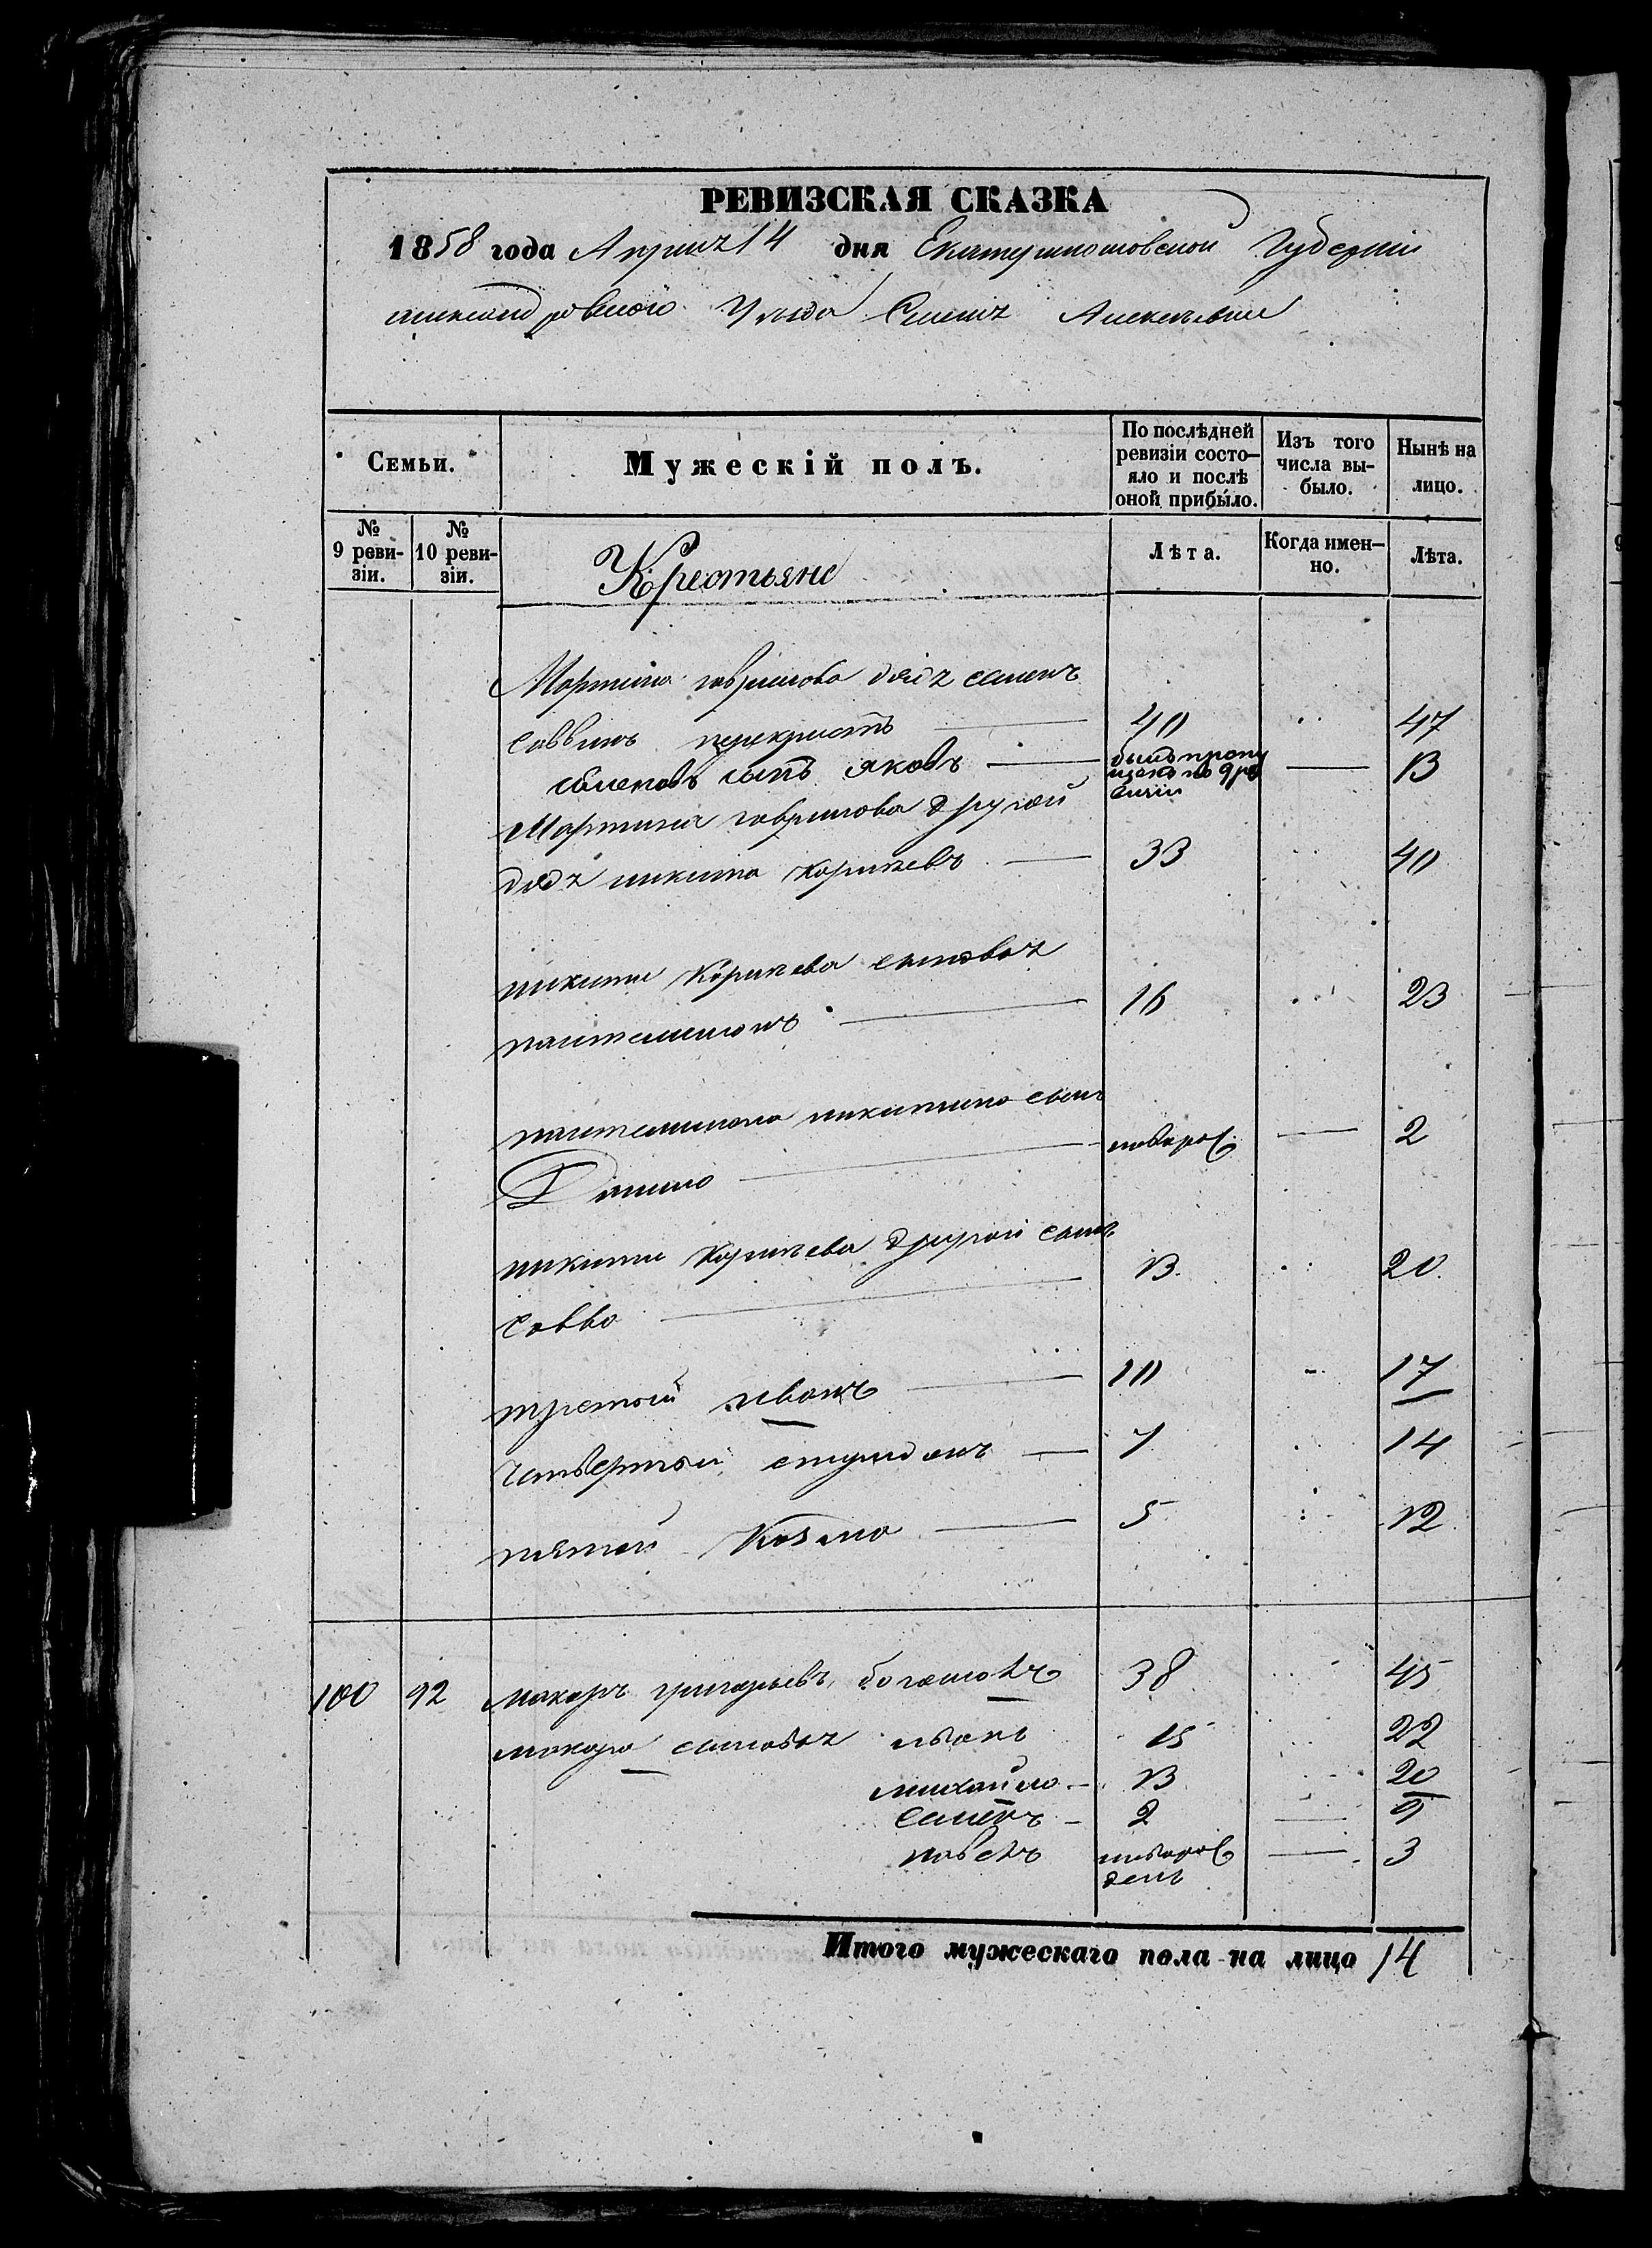 РЕВИЗСКАЯ СКАЗКА
1858 года Апреля 14 дня Екатеринославской Губерніи
александровского Уезда Селенія Алексеевки
Семьи.
Мужескій полъ.
По послѣдней ревизіи состо-
яло и послѣ
оной прибыло.
Изъ того
числа вы-
было.
Нынѣ на
лицо.
№
9 реви-
зіи.
№
10 реви-
зіи.
Крестьяне
Лѣта.
Когда имен-
но.
Лѣта.
Мартина гаврилова дядя семенъ
саввинъ перекристъ 40 47
семеновъ сынъ яковъ былъ пропу
щенъ по 9 ре
визіи 13
Мартина гаврилова другой
дядя никита карпъевъ 33 40
никиты карпъева сыновья
пантелимонъ 16 23
пантелимона никитина сынъ
Данило новорож 2
никиты карпъева другой сынъ
савва 13 20
третій иванъ 10 17
четвертый спиридонъ 7 14
пятый Козма 5 12
100 92 макаръ григорьевъ 38 45
макара сыновья иванъ 15 22
михайло 13 20
семенъ 2 9
павелъ новорож
денъ 3
Итого мужескаго пола на лицо 14